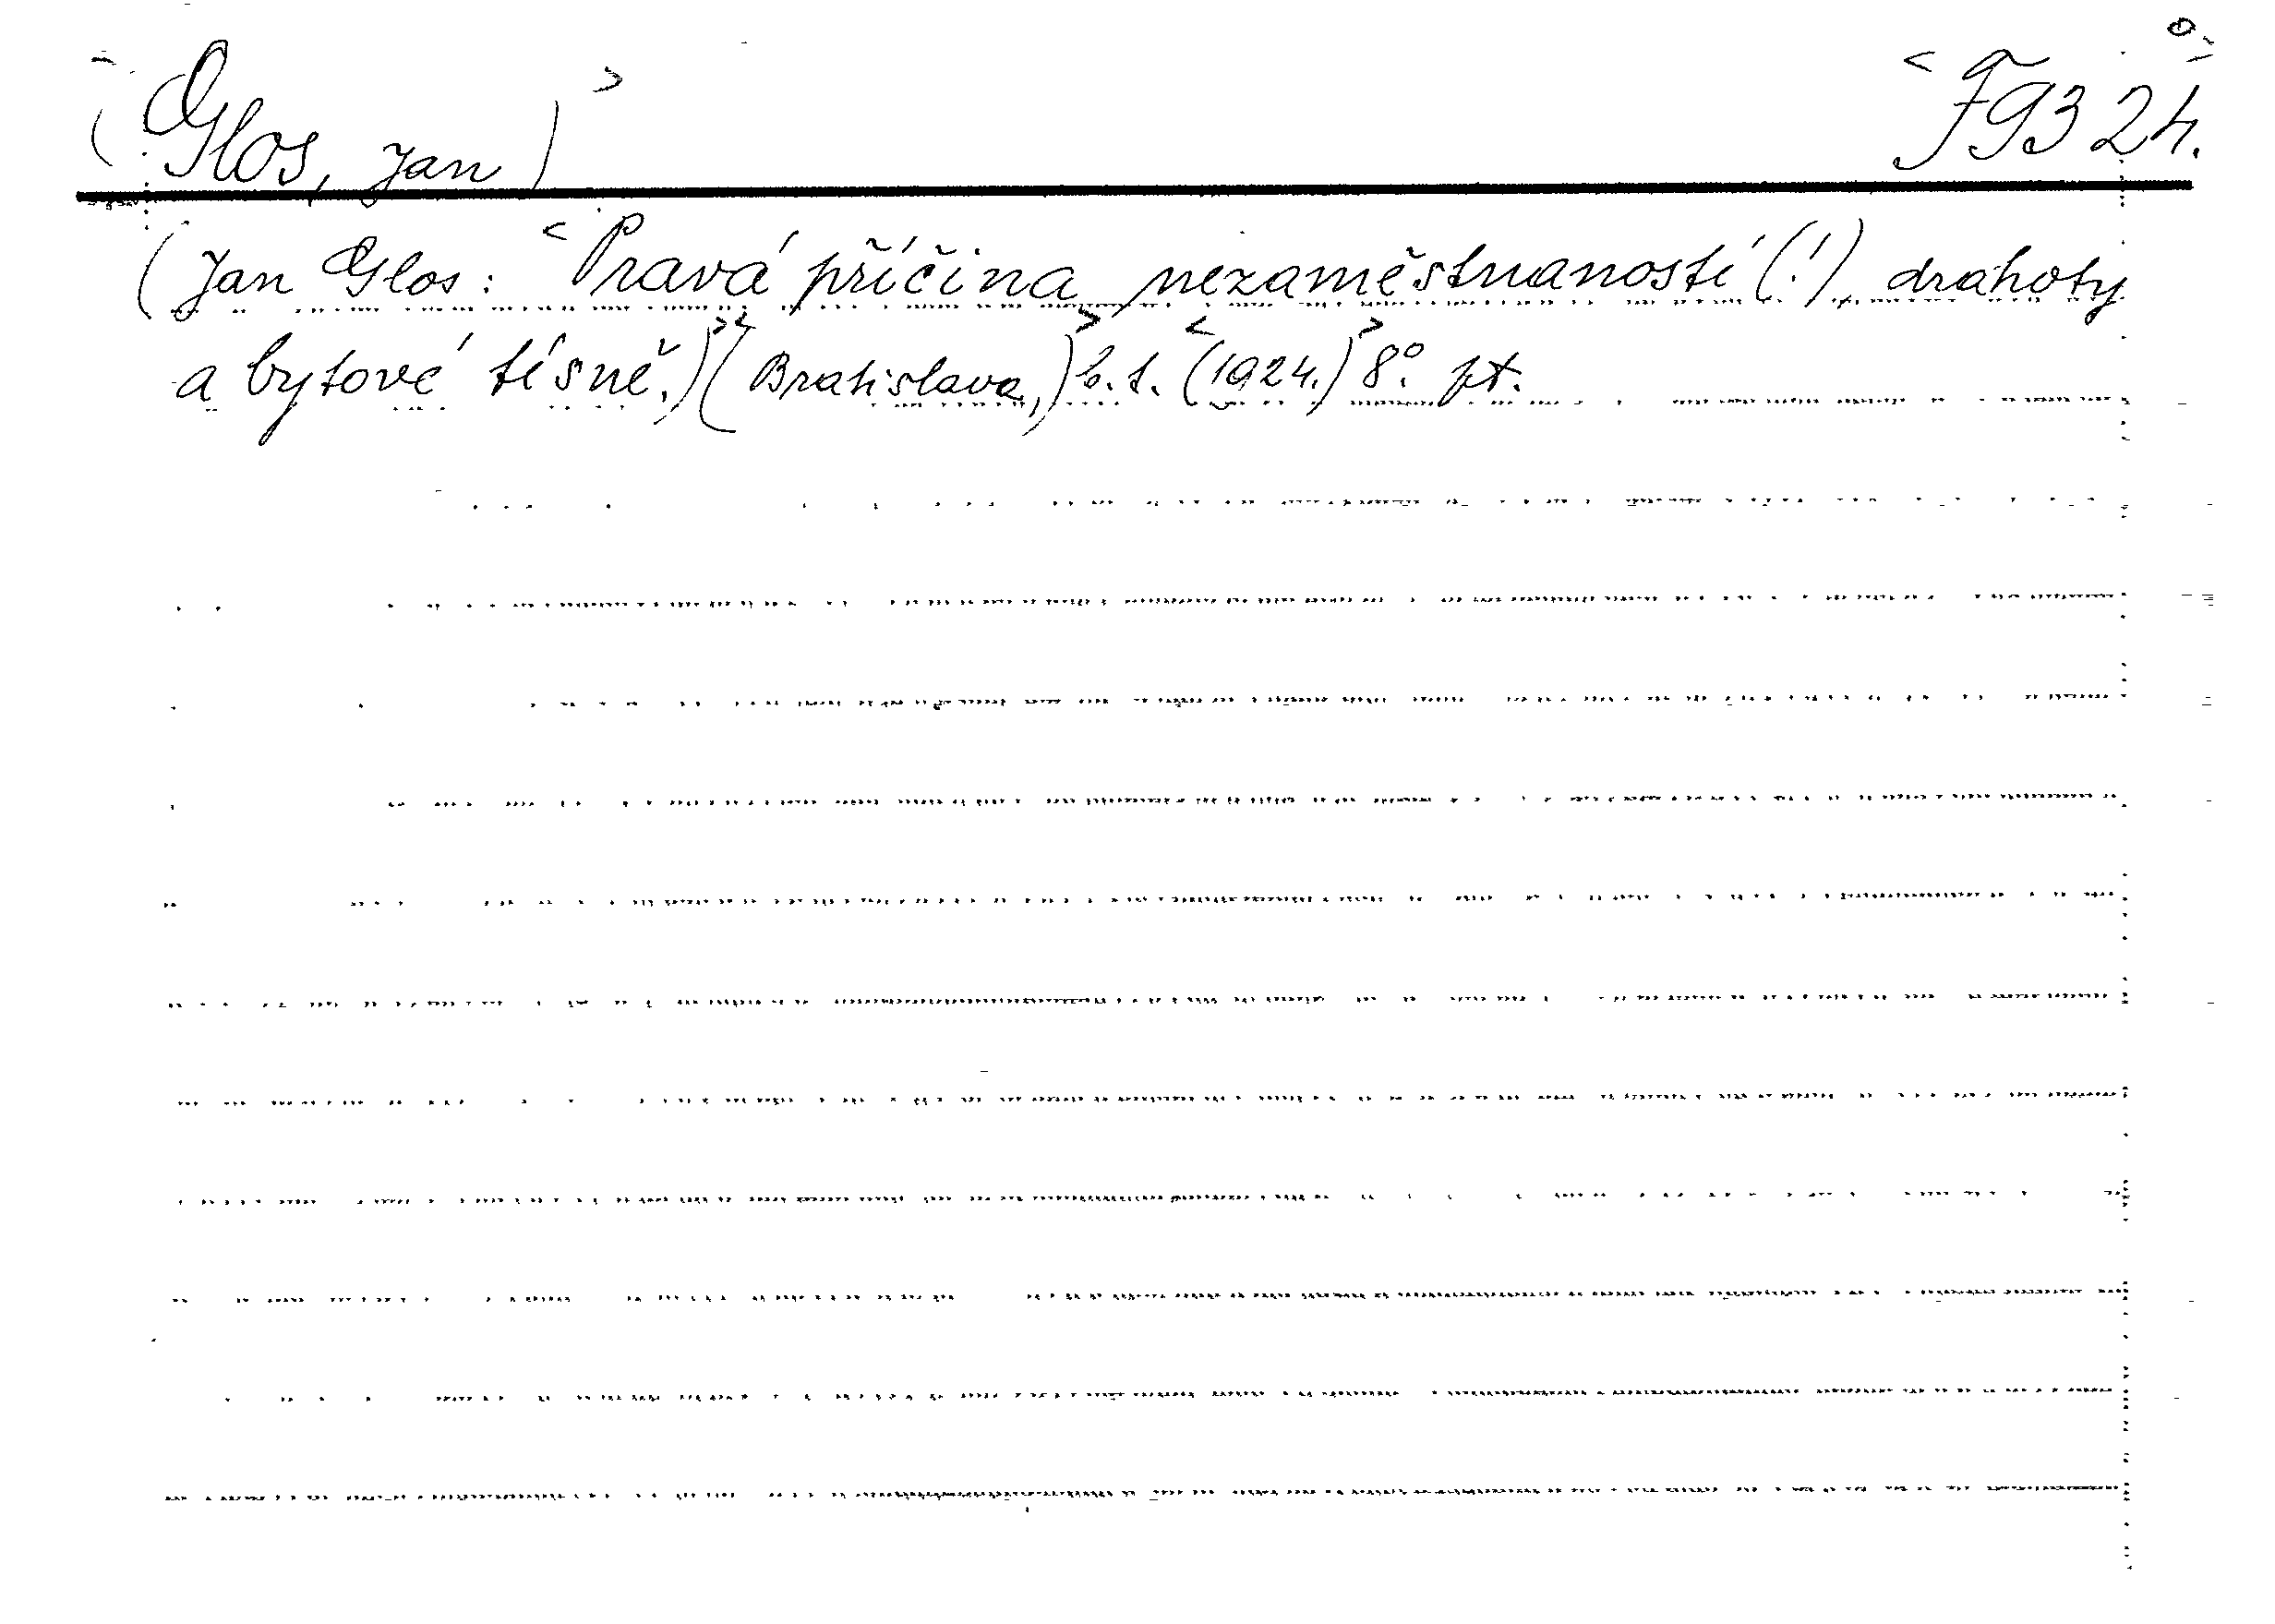 (Glos, Jan) >
< F 9324.
(Jan Glos: < Pravá příčina nezaměstnanosti (!), drahoty
a bytové tísně.) > < (Bratislava,) > b. t. < (1924.) > 8°. pt.